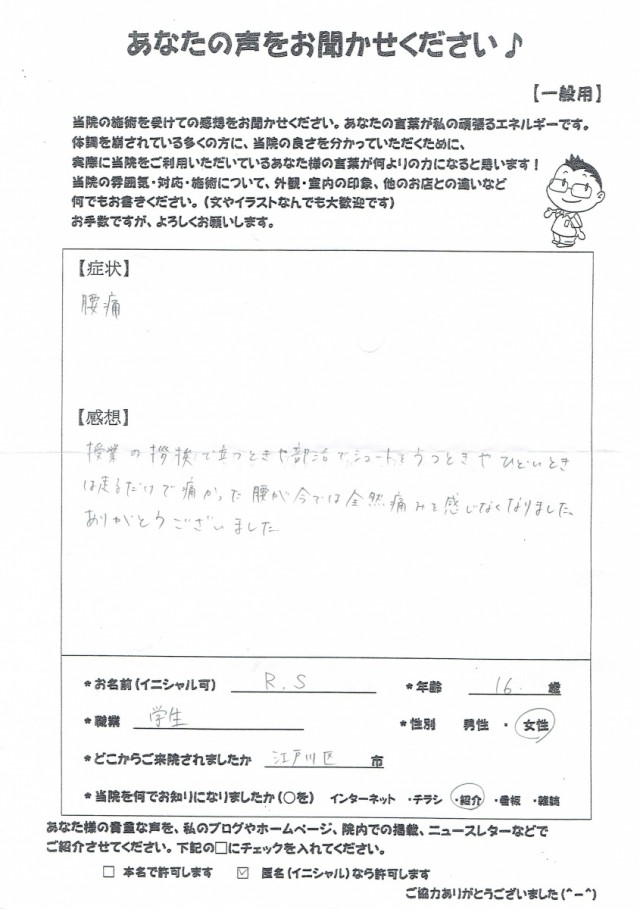 あなたの声をお聞かせください♪
【一般用】
当院の施術を受けての感想をお聞かせください。あなたの言葉が私の頑張るエネルギーです。
体調を崩されている多くの方に、当院の良さを分かっていただくために、
実際に当院をご利用いただいているあなた様の言葉が何よりの力になると思います！
当院の雰囲気・対応・施術について、外観・室内の印象、他のお店との違いなど
何でもお書きください。(文やイラストなんでも大歓迎です)
お手数ですが、よろしくお願いします。
【症状】
腰痛
【感想】
授業の挨拶で立つときや部活でシュートをうつときやひどいとき
は走るだけで痛かった腰が今では全然痛みを感じなくなりました。
ありがとうございました
*お名前(イニシャル可) R.S *年齢 16. 歳
*職業 学生 *性別 男性 ・ 女性
*どこからご来院されましたか 江戸川区 市
*当院を何でお知りになりましたか(○を) インターネット ・チラシ ・紹介 ・看板 ・雑誌
あなた様の貴重な声を、私のブログやホームページ、院内での掲載、ニュースレターなどで
ご紹介させてください。下記の□にチェックを入れてください。
□ 本名で許可します ☑ 匿名(イニシャル)なら許可します
ご協力ありがとうございました(^-^)